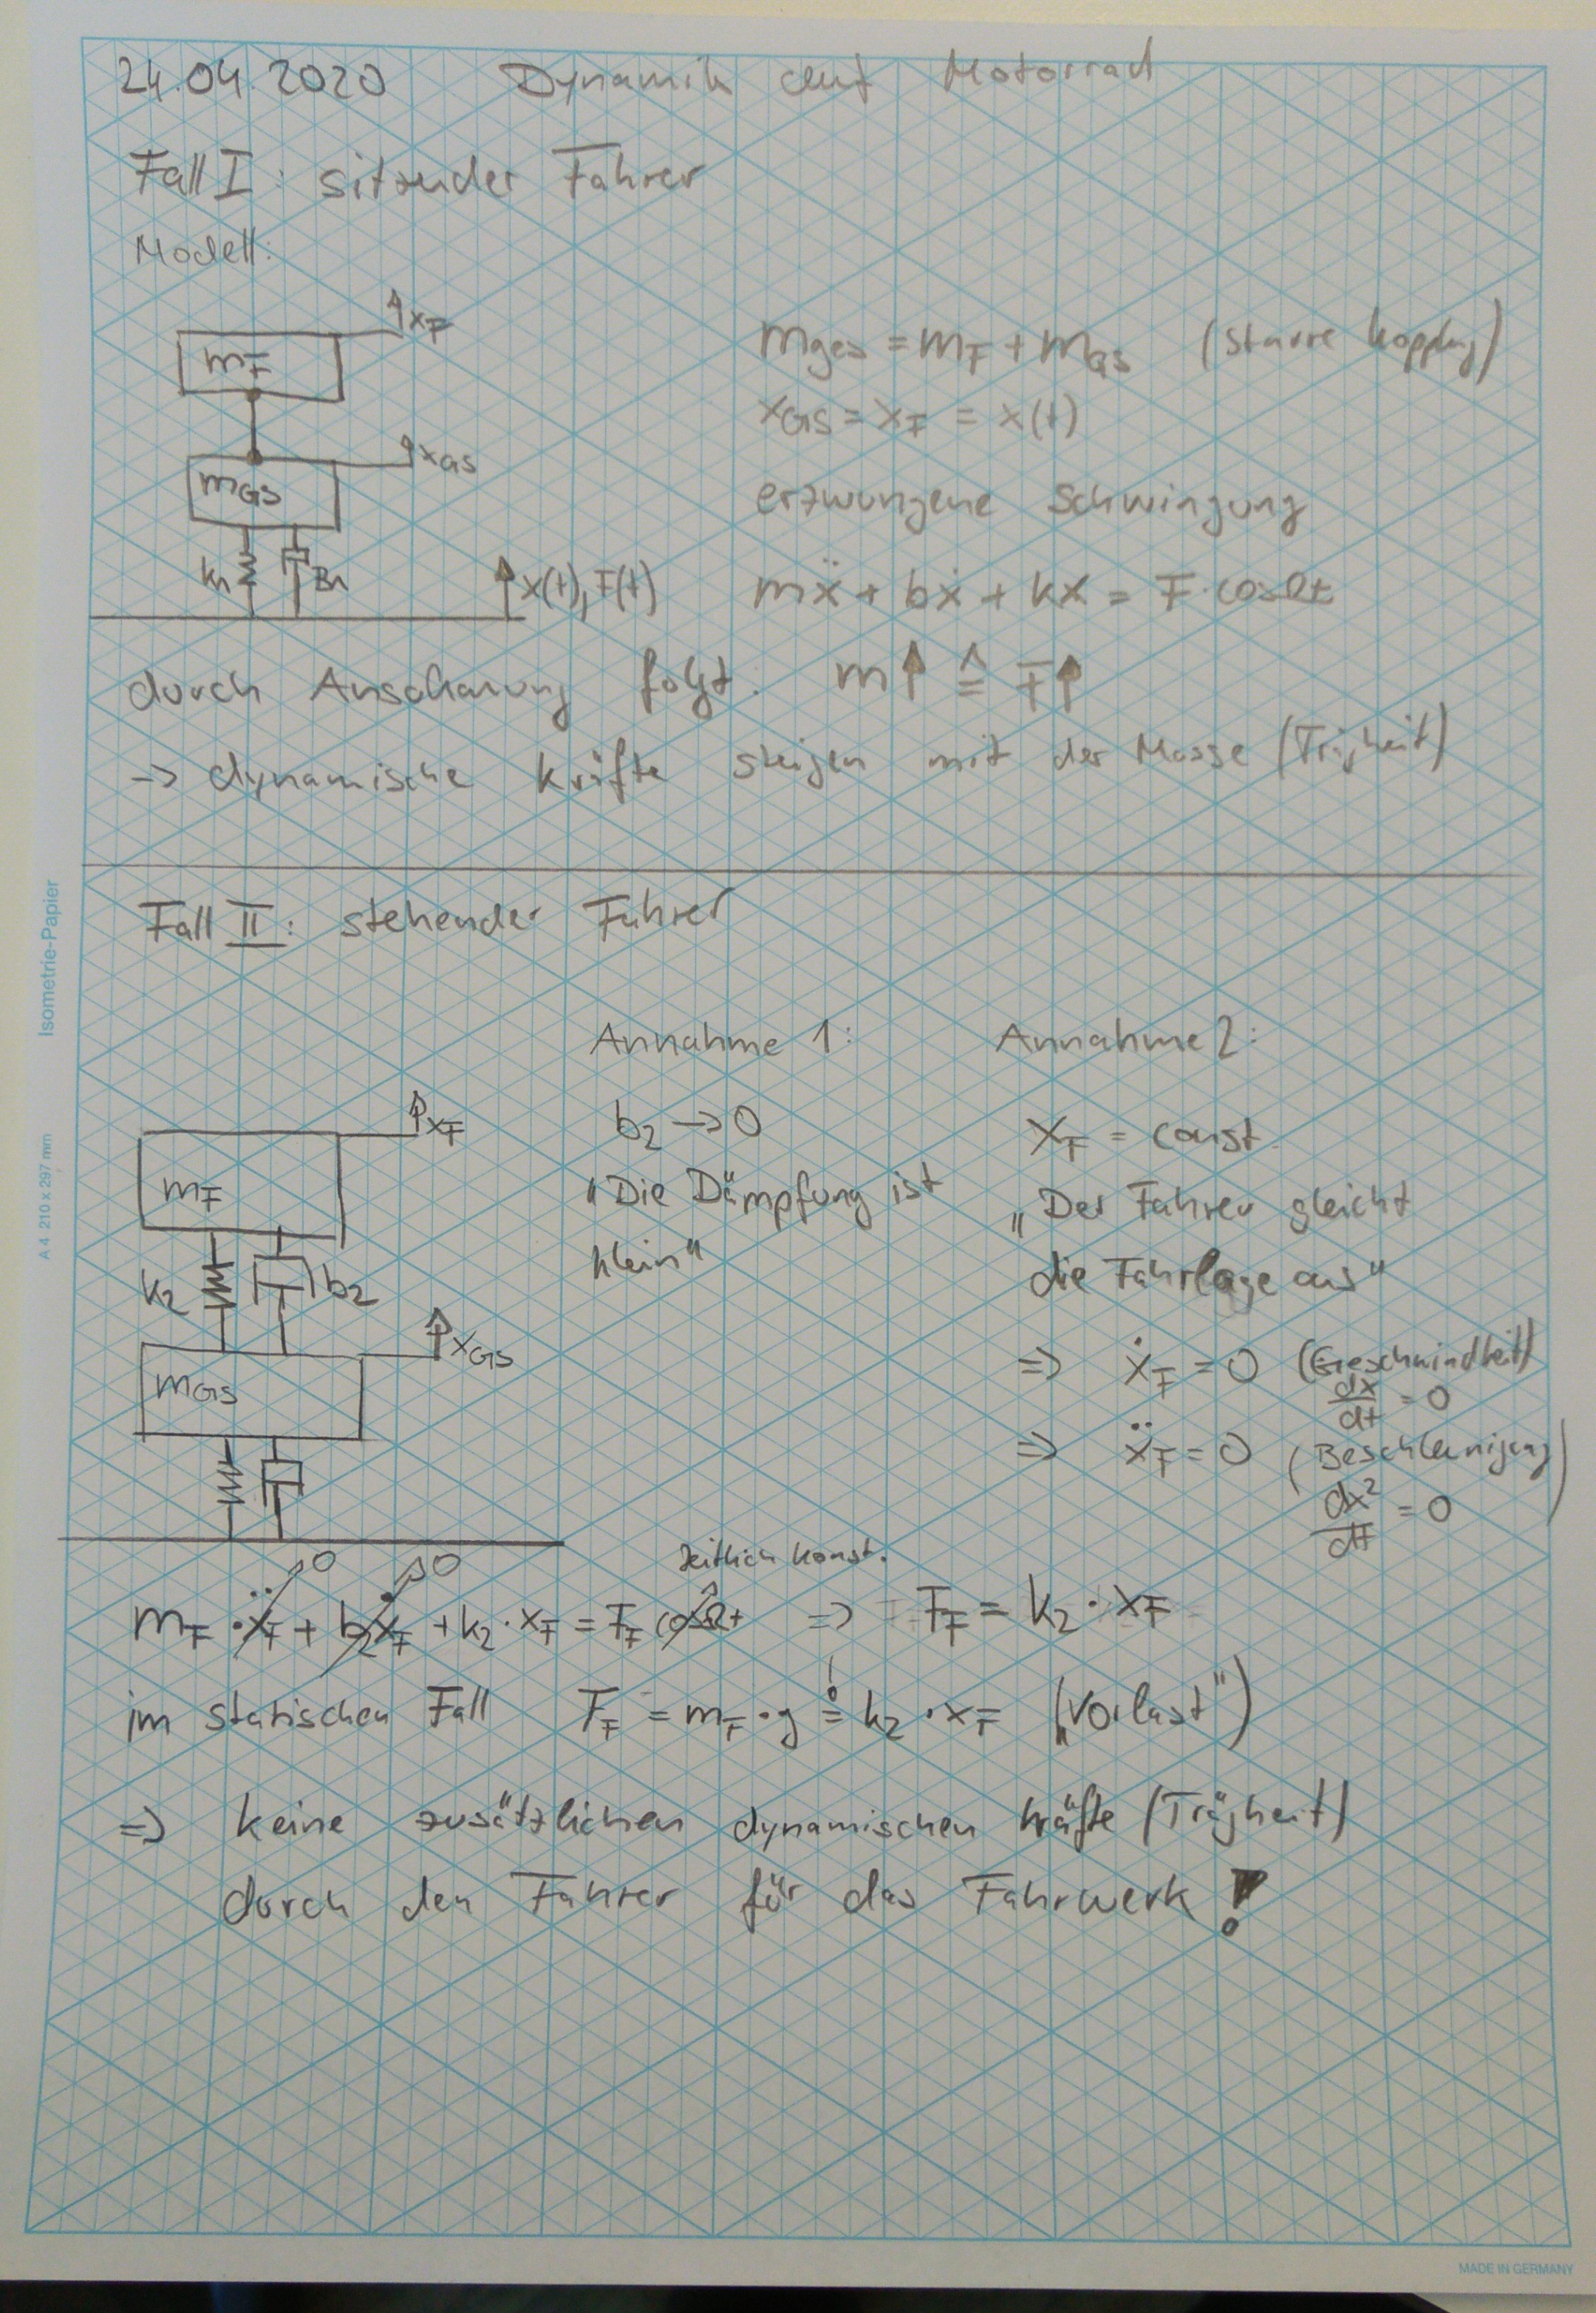 24.04.2020 Dynamik auf Motorrad
Fall I: sitzender Fahrer
Modell:
x_F
m_F
m_ges = m_F + m_GS (starre Kopplung)
x_GS = x_F = x(t)
x_GS
m_GS
erzwungene Schwingung
k_1 B_1 x(t), F(t)
mẍ + bẋ + kx = F·cosΩt
durch Anschauung folgt: m↑ ≙ F↑
-> dynamische Kräfte steigen mit der Masse (Trägheit)
Fall II: stehender Fahrer
Annahme 1: Annahme 2:
x_F
m_F
k_2 b_2
x_GS
m_GS
b_2 -> 0
"Die Dämpfung ist
klein"
x_F = const.
„Der Fahrer gleicht
die Fahrlage aus"
=> ẋ_F = 0 (Geschwindigkeit)
dx/dt = 0
=> ẍ_F = 0 (Beschleunigung)
dx²/dt = 0
0 0 zeitlich konst.
m_F·ẍ_F + b_2ẋ_F + k_2·x_F = F_F cosΩt => F_F = k_2·x_F
im statischen Fall F_F = m_F·g != k_2·x_F („Vorlast")
=> keine zusätzlichen dynamischen Kräfte (Trägheit)
durch den Fahrer für das Fahrwerk!
Isometrie-Papier
A 4 210 x 297 mm
MADE IN GERMANY